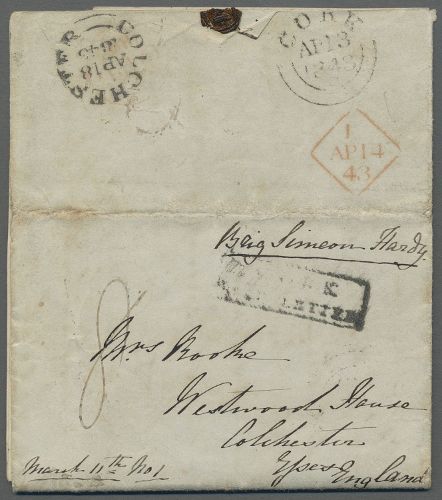 COLCHESTER
AP 18
1843
CORK
AP 13
1843
1
AP 14
43
Brig Simeon Hardy
CORK
LETTER
8
Mrs Rooke
Westwood House
Colchester
England
March 11th No 1